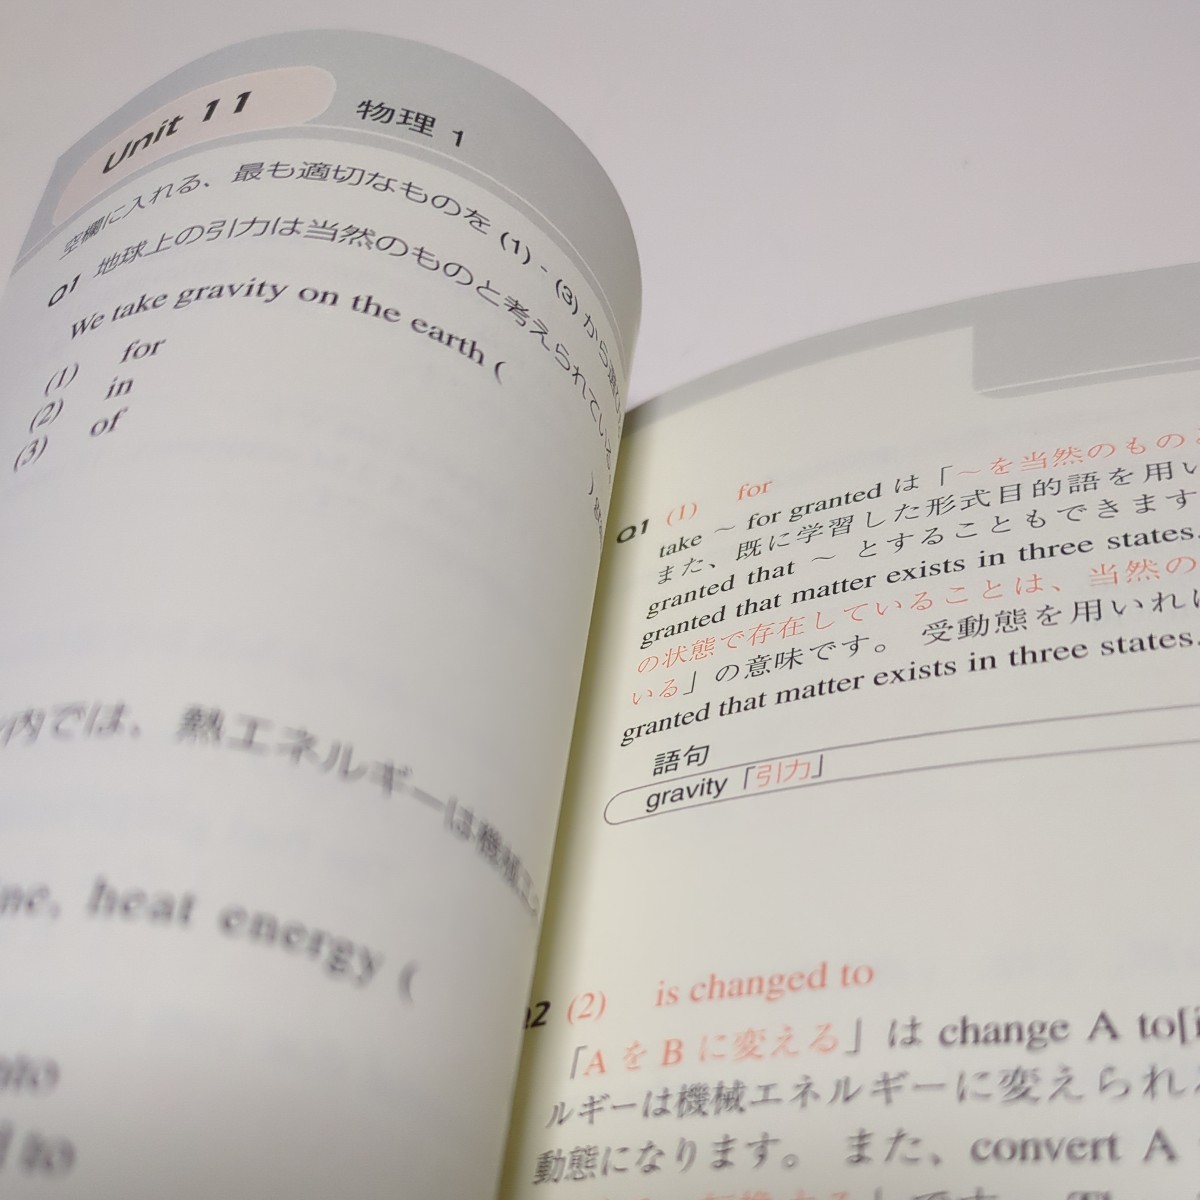 Unit 11 物理 1
空欄に入れる、最も適切なものを (1) - (3) から選び
Q1 地球上の引力は当然のものと考えられている。
We take gravity on the earth (
(1) for
(2) in
(3) of
内では、熱エネルギーは機械エ
heat energy (
to
Q1 (1) for
take ～ for granted は「～を当然のものと
また、既に学習した形式目的語を用い
granted that ～ とすることもできます
granted that matter exists in three states.
の状態で存在していることは、当然の
いる」の意味です。 受動態を用いれば
granted that matter exists in three states.
語句
gravity「引力」
(2) is changed to
「A を B に変える」は change A to[i
ルギーは機械エネルギーに変えられ
動態になります。 また、convert A